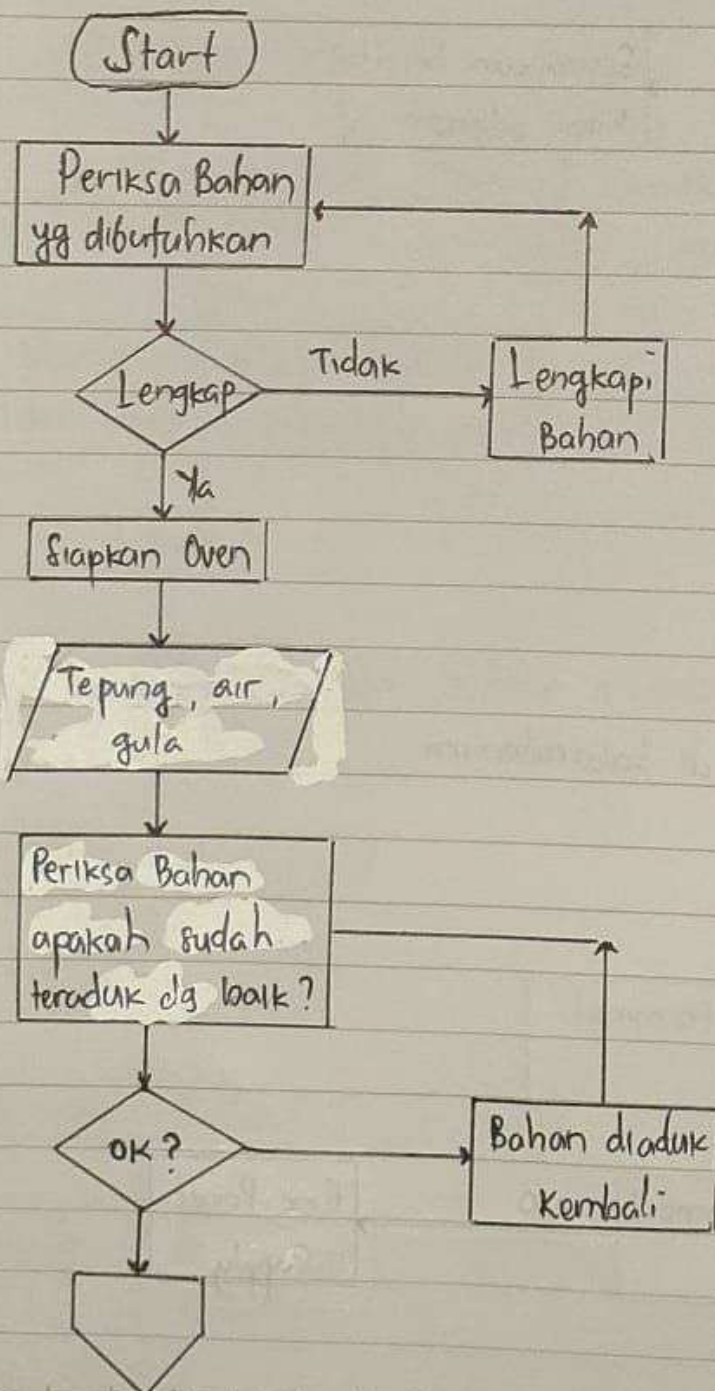 Start
Periksa Bahan
yg dibutuhkan
Lengkap
Tidak
Lengkapi
Bahan
Ya
Siapkan Oven
Tepung, air,
gula
Periksa Bahan
apakah sudah
teraduk dg baik?
OK?
Bahan diaduk
Kembali